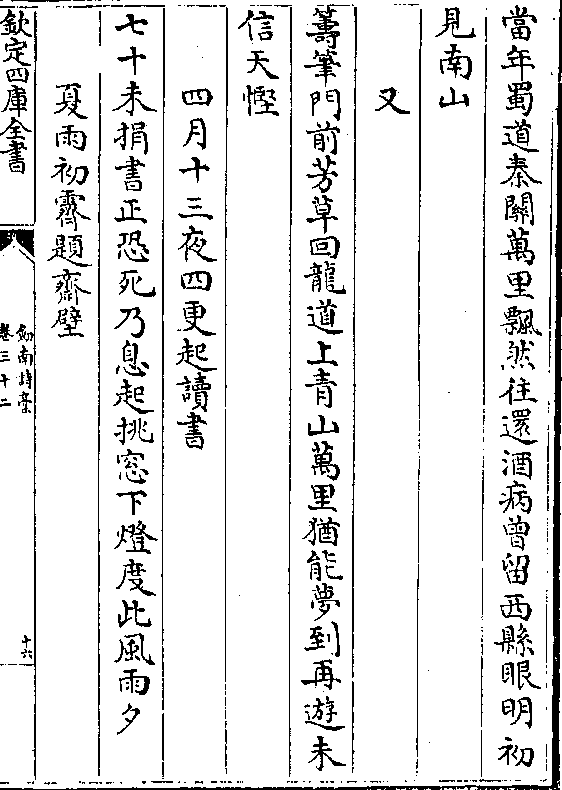 當年蜀道秦關萬里飄然往還酒病曾留西縣眼明初
見南山
又
籌筆門前芳草回龍道上青山萬里猶能夢到再遊未
信天慳
四月十三夜四更起讀書
七十未捐書正恐死乃息起挑窓下燈度此風雨夕
夏雨初霽題齋壁
欽定四庫全書
劒南詩藁
卷三十二
十六